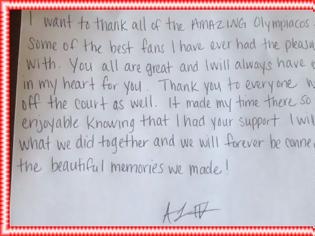 I want to thank all of the AMAZING Olympiacos
Some of the best fans I have ever had the pleasu
with. You all are great and I will always have
in my heart for you. Thank you to everyone
off the court as well. It made my time there so
enjoyable knowing that I had your support I wil
what we did together and we will forever be conne
the beautiful memories we made!